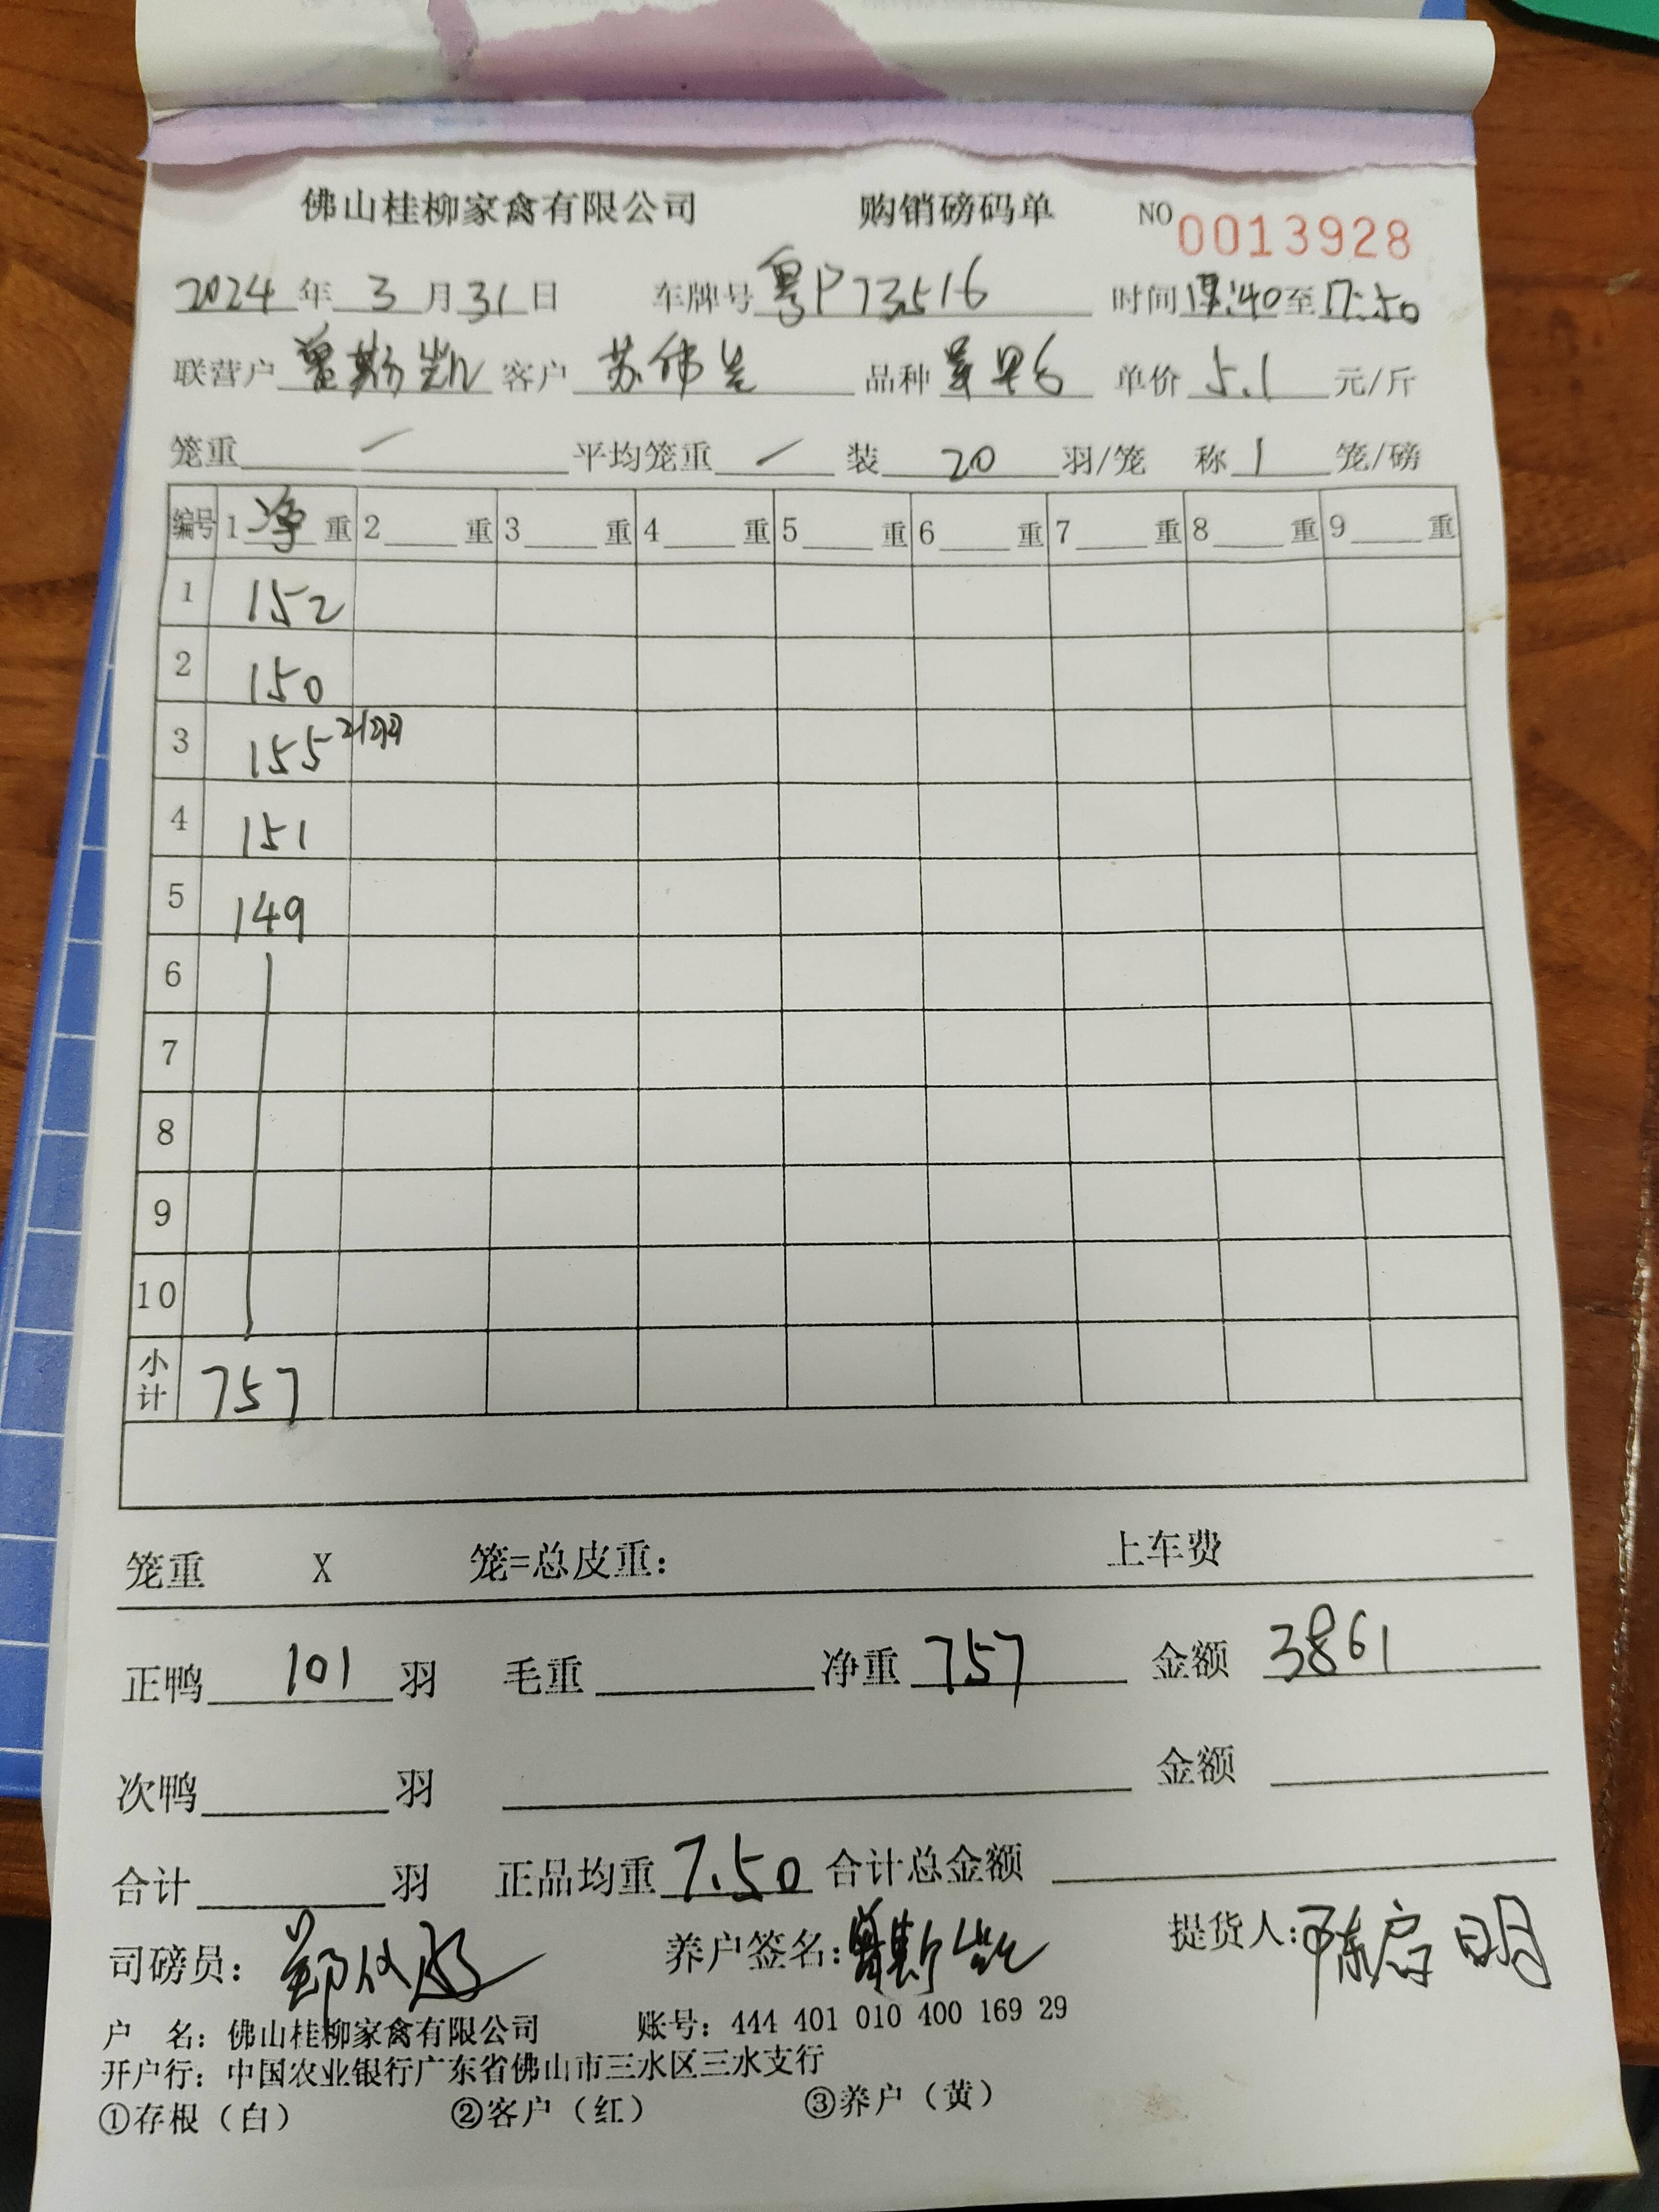 佛山桂柳家禽有限公司 购销磅码单 NO 0013928
2024年3月31日 车牌号 粤P73516 时间 :40至17:50
联营户 曾斯凯 客户 苏伟 品种 单价 5.1 元/斤
笼重 / 平均笼重 / 装 20 羽/笼 称 1 笼/磅
编号 1 净 重 2 重 3 重 4 重 5 重 6 重 7 重 8 重 9 重
1 152
2 150
3 155 21羽
4 151
5 149
6
7
8
9
10
小计 757
笼重 X 笼=总皮重: 上车费
正鸭 101 羽 毛重 净重 757 金额 3861
次鸭 羽 金额
合计 羽 正品均重 7.50 合计总金额
司磅员: 郑 养户签名: 曾斯凯 提货人: 陈启明
户 名: 佛山桂柳家禽有限公司 账号: 444 401 010 400 169 29
开户行: 中国农业银行广东省佛山市三水区三水支行
①存根(白) ②客户(红) ③养户(黄)